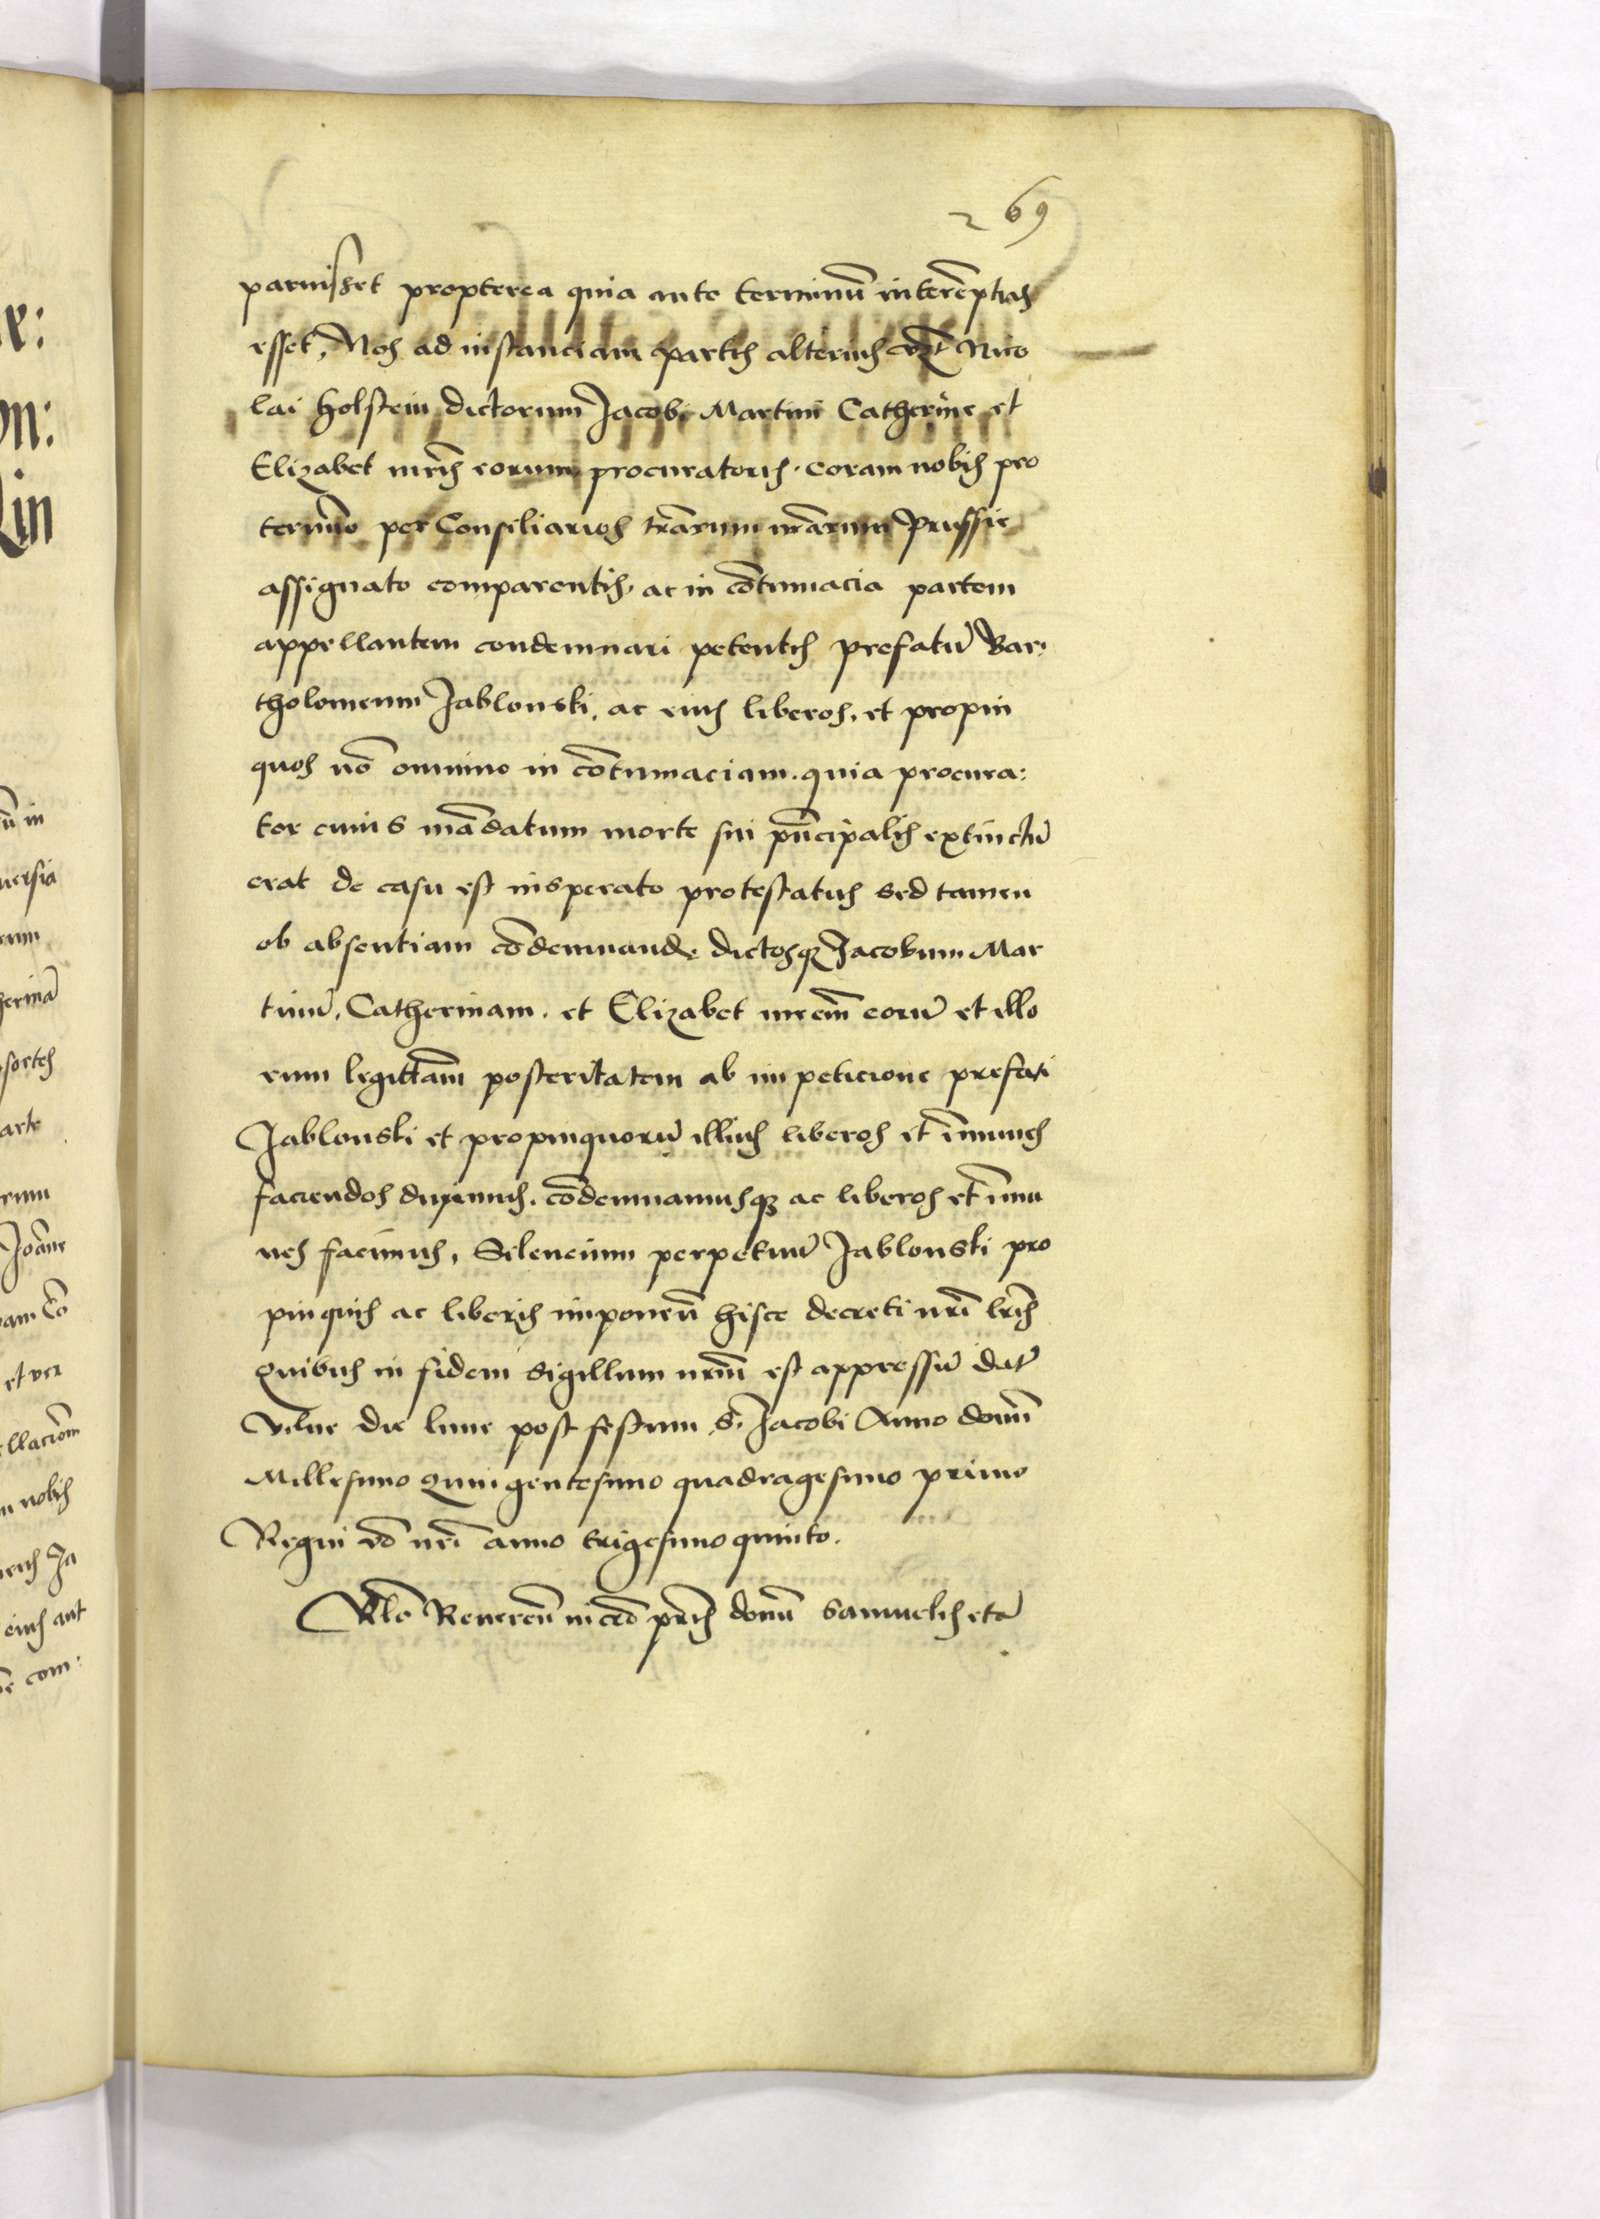 269
paruisset propterea quia ante terminū interēptus
esset, Nos ad instanciam partis alterius vzt Nico
lai Holstein dictorum Jacobi Martini Catherine et
Elizabet mrīs eorum procuratoris. coram nobis pro
termīo per Consiliarios trārum nrārum Prussie
assignato comparentis. ac in cōtumacia partem
appellantem condemnari petentis prefatū Bar:
tholomeum Jablonski. ac eius liberos. et propin
quos nō omnino in cōtumaciam. quia procura:
tor cuius mādatum morte sui prīcipalis extinctū
erat de casu est insperato protestatus sed tamen
ob absentiam cōdemnandos dictosq3 Jacobum Mar
tinū. Catherinam. et Elizabet mrem̄ eorū et illo
rum legittam̄ posteritatem ab impeticione prefati
Jablonski et propinquorū illius liberos et īmunes
faciendos duximus. cōdemnamusq3 ac liberos et īmu
nes facimus, Silencium perpetuū Jablonski pro
pinquis ac liberis imponeñ hisce decreti nrī lrīs
Quibus in fidem sigillum nrm̄ est appressū dat̄
Vilne die lune post festum S. Jacobi Anno domī
Millesimo Quingentesimo quadragesimo primo
Regni vō nrī anno trigesimo quinto.
Rlō Reuereñ in crō prīs domī Samuelis etc̄
ū in
uersia
herinā
arte
Joāne
et ver
llaciōm
nobis
eius ant
com: